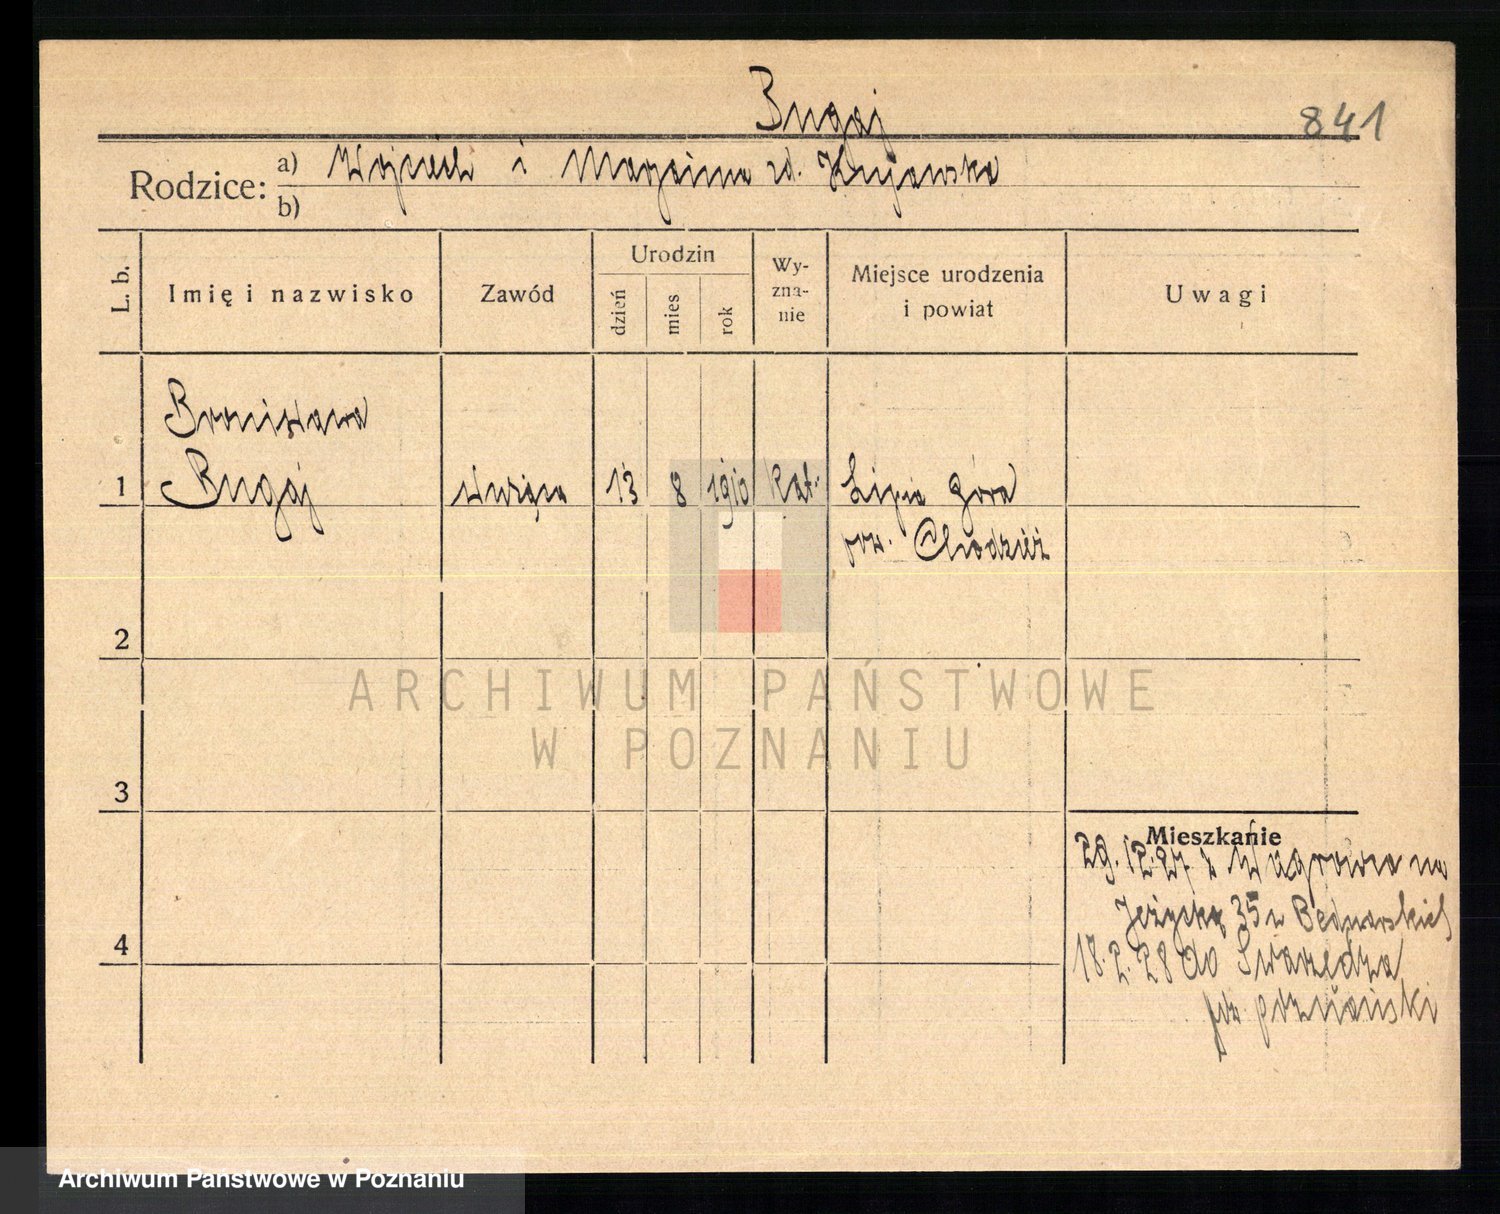 Bugaj
841
Rodzice:
a) Wojciech i Marjanna zd. Kujawska
b)
L. b.
Imię i nazwisko
Zawód
Urodzin
dzień
mies
rok
Wy-
zna-
nie
Miejsce urodzenia
i powiat
Uwagi
Bronisława
1 Bugaj służąca 13 8 1910 kat. Lipia Góra
pow. Chodzież
2
ARCHIWUM PAŃSTWOWE
W POZNANIU
3
Mieszkanie
29.12.27 z Wągrowca na
Jeżycką 35 u Bednarskich
4
18.2.28 do Swarzędza
pow poznański
Archiwum Państwowe w Poznaniu